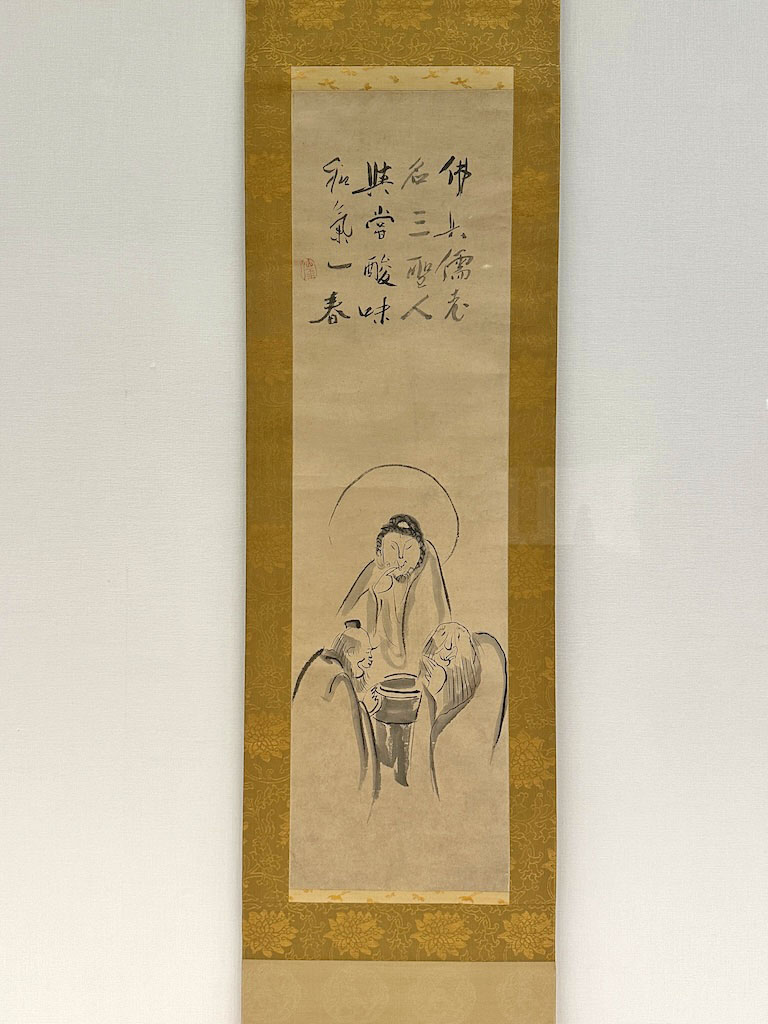 佛 儒老
名三聖人
與嘗酸味
和氣一春